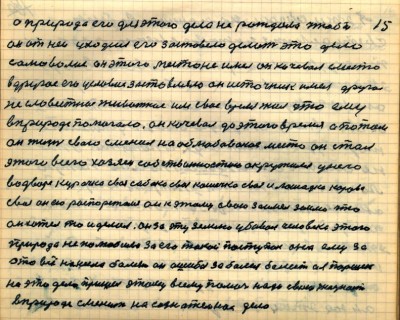 а природа его для этого дела не рождала чтобы 15
он от неи уходил его заставело делат это дело
само волие он этого место не имел он кочевал с место
в другое его условие заставляло он источник имел друга
не словетное животное им свое время жил это ему
в природе помогало. он кочевал до этого время а потом
он тому свого сменил на облюбованое место он стал
этого всего хозяен собственностю окружился у него
во дворе курочка своя собака своя кошечка своя и лошадка корова
своя он ею распорежал он к этому свою землю занел что
он хотел то и делал. он за эту землю убивал человека этого
природа не полюбила за его такой поступок она ему за
ето всё нанела болью он ошибся заболел болеет ил поршек
на это дело пришел этому всему помоч надо свою жизност
в природе сменит на сознателное дело